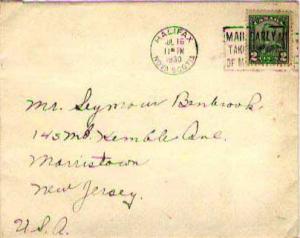 HALIFAX
JL 16
11 PM
1930
NOVA SCOTIA
MAIL EARLY
TAKE
OF M
2 2
Mr. Seymour Benbrook
145 Mt. Kemble Ave.
Morristown
New Jersey.
U.S.A.